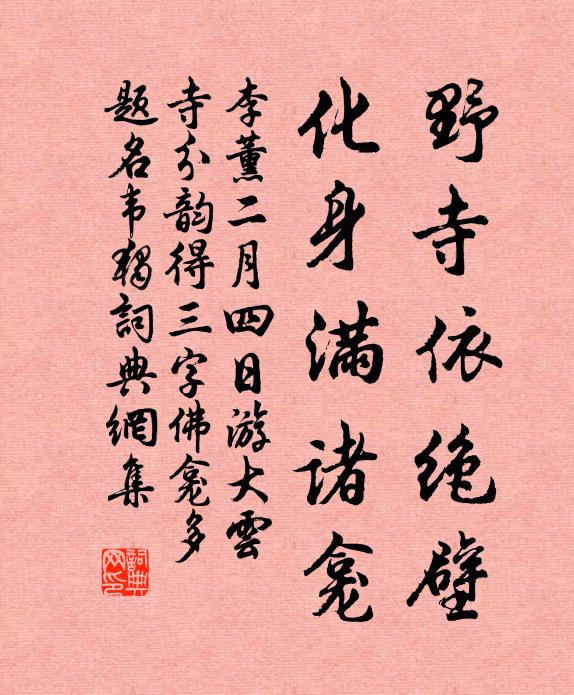 野寺依绝壁
化身满诸龛
李薰二月四日游大雲
寺分韵得三字佛龛多
题名韦詞典網集
詞典
网印